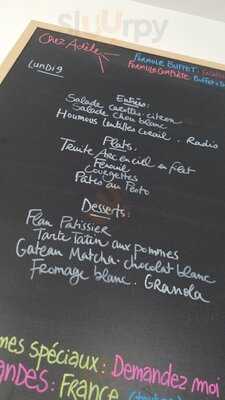 Sluurpy
Chez Adèle
FORMULE BUFFET:
FORMULE COMPLÈTE: Buffet +
LUNDI 9
Entrées:
Salade carottes citron
Salade chou blanc
Houmous lentilles corail. Radis
Plats.
Truite Arc en ciel en filet
Fenouil
Courgettes
Pâtes au Pesto
Desserts:
Flan Pâtissier
Tarte Tatin aux pommes
Gateau Matcha. chocolat blanc
Fromage blanc. Granola
mes spéciaux: Demandez moi
ANDES: France